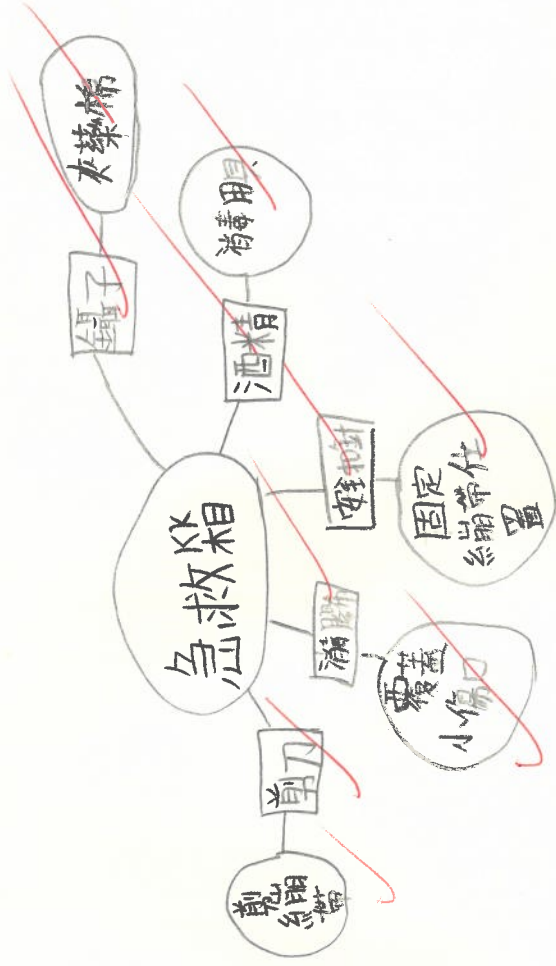 急救箱
鑷子
夾藥棉
酒精
消毒用具
安全扣針
固定
繃帶位
置
覆蓋
小傷口
剪刀
剪
繃
帶